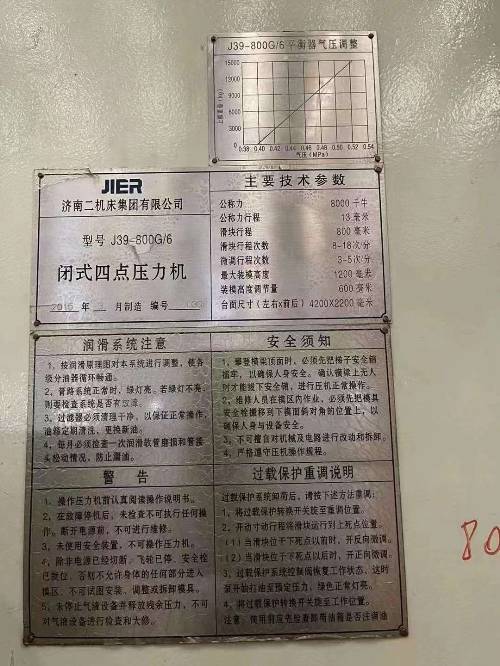 J39-800G/6平衡器气压调整
15000
12000
9000
6000
3000
0
0.38 0.40 0.42 0.44 0.46 0.48 0.50 0.52 0.54
气压(MPa)
JIER
济南二机床集团有限公司
型号 J39-800G/6
闭式四点压力机
2015 年 3 月制造 编号
主要技术参数
公称力 8000千牛
公称力行程 13毫米
滑块行程 800毫米
滑块行程次数 8-18次/分
微调行程次数 3-5次/分
最大装模高度 1200毫米
装模高度调节量 600毫米
台面尺寸(左右x前后) 4200X2200毫米
润滑系统注意
1、按润滑原理图对本系统进行调整,使各
级分油器循环畅通。
2、管路系统正常时,绿灯亮。若绿灯不亮,
则要检查系统是否有故障。
3、过滤器必须清理干净,以保证正常操作,
油移定期清洗、更换新油。
4、每月必须检查一次润滑软管磨损和管接
头松动情况,防止漏油。
安全须知
1、攀登横梁顶面时,必须先把梯子安全销
拔牢,以确保人身安全。确认横梁上无人
时才能拔下安全销,进行压机正常操作。
2、维修人员在模区内作业,必须先把模具
安全栓挪移到下模面斜对角的位置上,以
确保人身与设备安全。
3、不可擅自对机械及电路进行改动和拆卸。
4、严格遵守压机操作规程。
警告
1、操作压力机前认真阅读操作说明书。
2、在故障停机后,未检查不可执行任何操
作。断开电源前,不可进行维修。
3、未使用安全装置,不可操作压力机。
4、除非电源已经切断,飞轮已停、安全栓
已就位,否则不允许身体的任何部分进入
模区、不可试图安装、调整或拆卸模具。
5、未停止气液设备并释放残余压力,不可
对气液设备进行检查和大修。
过载保护重调说明
过载保护系统卸荷后,请按下述方法重调:
1、将过载保护转换开关旋至重调位置。
2、开动寸动行程将滑块运行到上死点位置。
(1)当滑块位于下死点以前时,开反向微调。
(2)当滑块位于下死点以后时,开正向微调。
3、过载保护系统控制阀恢复工作状态,这时
泵开始打油至预定压力,绿色正常灯亮。
4、将过载保护转换开关旋至工作位置。
注意:使用前应先检查卸荷油箱是否注满油
80